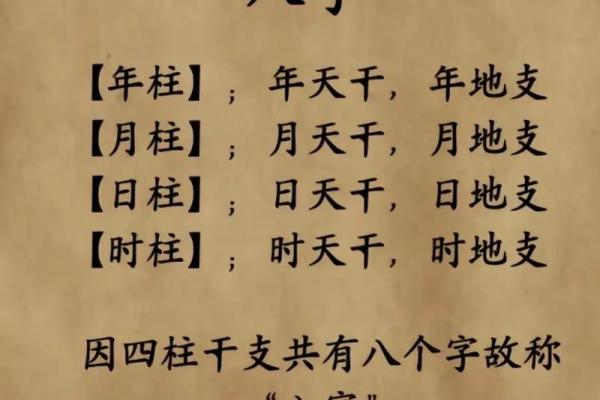 八字
【年柱】；年天干，年地支
【月柱】；月天干，月地支
【日柱】；日天干，日地支
【时柱】；时天干，时地支
因四柱干支共有八个字故称
“八字”